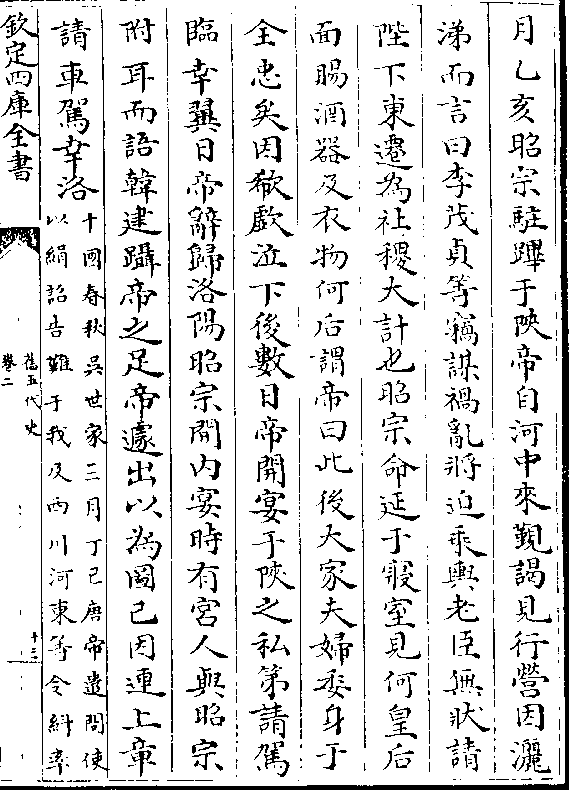 月乙亥昭宗駐蹕于陜帝自河中來覲謁見行營因灑
涕而言曰李茂貞等竊謀禍亂將迫乘輿老臣無狀請
陛下東遷為社稷大計也昭宗命延于寢室見何皇后
面賜酒器及衣物何后謂帝曰此後大家夫婦委身于
全忠矣因欷歔泣下後數日帝開宴于陜之私第請駕
臨幸翼日帝辭歸洛陽昭宗開內宴時有宮人與昭宗
附耳而語韓建躡帝之足帝遽出以為圖己因連上章
請車駕幸洛
十國春秋吳世家三月丁已唐帝遣間使
以絹詔告難于我及西川河東等令糾率
欽定四庫全書
舊五代史
卷二
十三